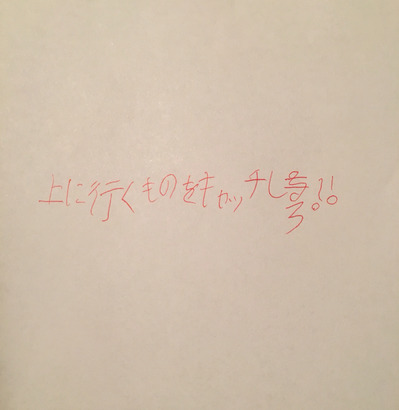 上に行くものをキャッチしろ!!